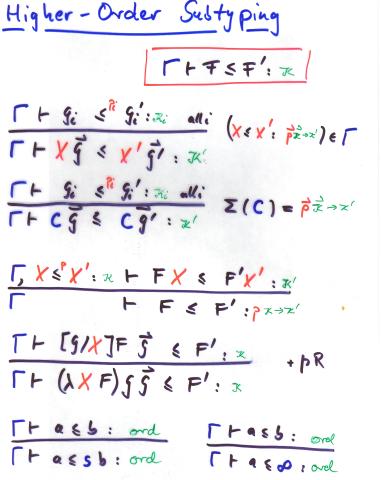 Higher-Order Subtyping
Γ ⊢ F ≤ F' : κ
Γ ⊢ G_i ≤^{p_i} G_i' : κ_i all i
(X ≤ X' : p⃗ κ⃗ → κ') ∈ Γ
Γ ⊢ X G⃗ ≤ X' G⃗' : κ'
Γ ⊢ G_i ≤^{p_i} G_i' : κ_i all i
Σ(C) = p⃗ κ⃗ → κ'
Γ ⊢ C G⃗ ≤ C G⃗' : κ'
Γ, X ≤^p X' : κ ⊢ F X ≤ F' X' : κ'
Γ ⊢ F ≤ F' : p κ → κ'
Γ ⊢ [G/X]F G⃗ ≤ F' : κ
+ pR
Γ ⊢ (λX F) G G⃗ ≤ F' : κ
Γ ⊢ a ≤ b : ord Γ ⊢ a ≤ b : ord
Γ ⊢ a ≤ s b : ord Γ ⊢ a ≤ ∞ : ord